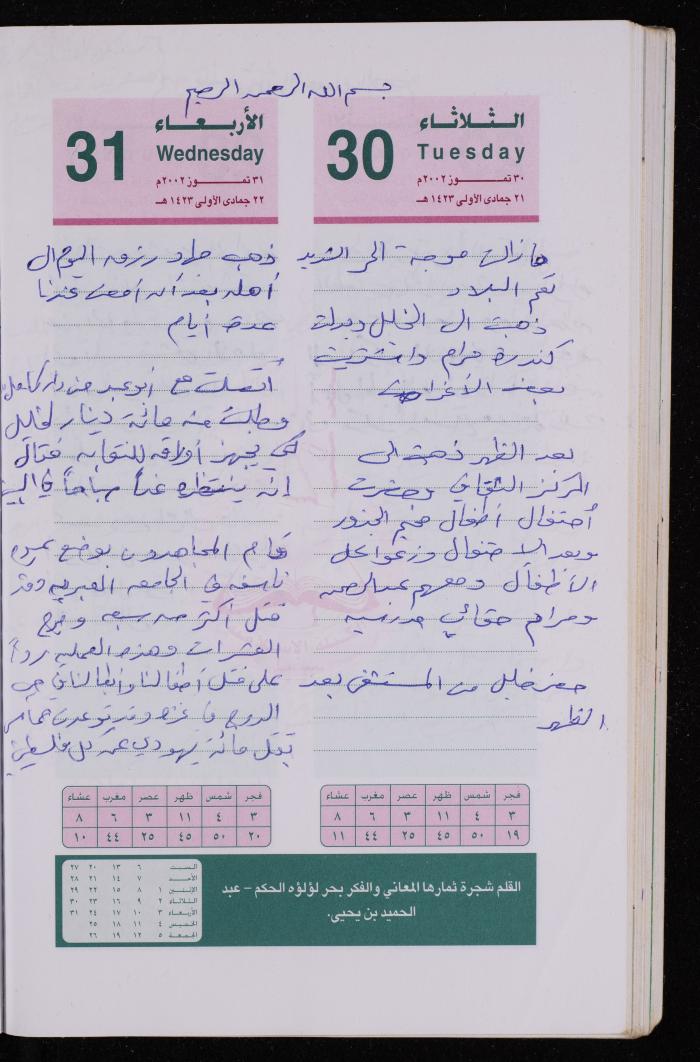 بسم الله الرحمن الرحيم
الثلاثاء
30
Tuesday
٣٠ تمـــوز ٢٠٠٢م
٢١ جمادى الأولى ١٤٢٣ هـ
مازالت موجة الحر الشديد
تعم البلاد
ذهبت الى الخليل وبدلت
كندرة مرام واشتريت
بعض الأغراض
بعد الظهر ذهبت الى
المركز الثقافي وحضرت
أحتفال أطفال مخيم الجذور
وبعد الاحتفال وزعوا على
الأطفال ومعهم عبدالرحمن
ومرام حقائب مدرسيه
حضر خليل من المستشفى بعد
الظهر
الأربعاء
31
Wednesday
٣١ تمـــوز ٢٠٠٢م
٢٢ جمادى الأولى ١٤٢٣ هـ
ذهب جهاد رزق اليوم الى
أهله بعد أن أمضى عندنا
عدة أيام
أتصلت مع أبو عبد من دار كامل
وطلبت منه مائة دينار لخليل
كي يجهز أوراقه للنقابه فقال
إنه ينتظره غداً صباحاً في البيت
قام المجاهدون بوضع عبوه
ناسفه في الجامعه العبريه وقد
قتل أكثر من سبعه وجرح
العشرات وهذه العمليه رداً
على قتل أطفالنا وأبطالنا في
في غزه وقد توعدت حماس
بقتل مائة يهودي عن كل فلسطيني
فجر شمس ظهر عصر مغرب عشاء
٣ ٤ ١١ ٣ ٦ ٨
١٩ ٥٠ ٤٥ ٢٥ ٤٤ ١١
فجر شمس ظهر عصر مغرب عشاء
٣ ٤ ١١ ٣ ٦ ٨
٢٠ ٥٠ ٤٥ ٢٥ ٤٤ ١٠
القلم شجرة ثمارها المعاني والفكر بحر لؤلؤه الحكم – عبد
الحميد بن يحيى.
السبت ٦ ١٣ ٢٠ ٢٧
الأحد ٧ ١٤ ٢١ ٢٨
الإثنين ١ ٨ ١٥ ٢٢ ٢٩
الثلاثاء ٢ ٩ ١٦ ٢٣ ٣٠
الأربعاء ٣ ١٠ ١٧ ٢٤ ٣١
الخميس ٤ ١١ ١٨ ٢٥
الجمعة ٥ ١٢ ١٩ ٢٦